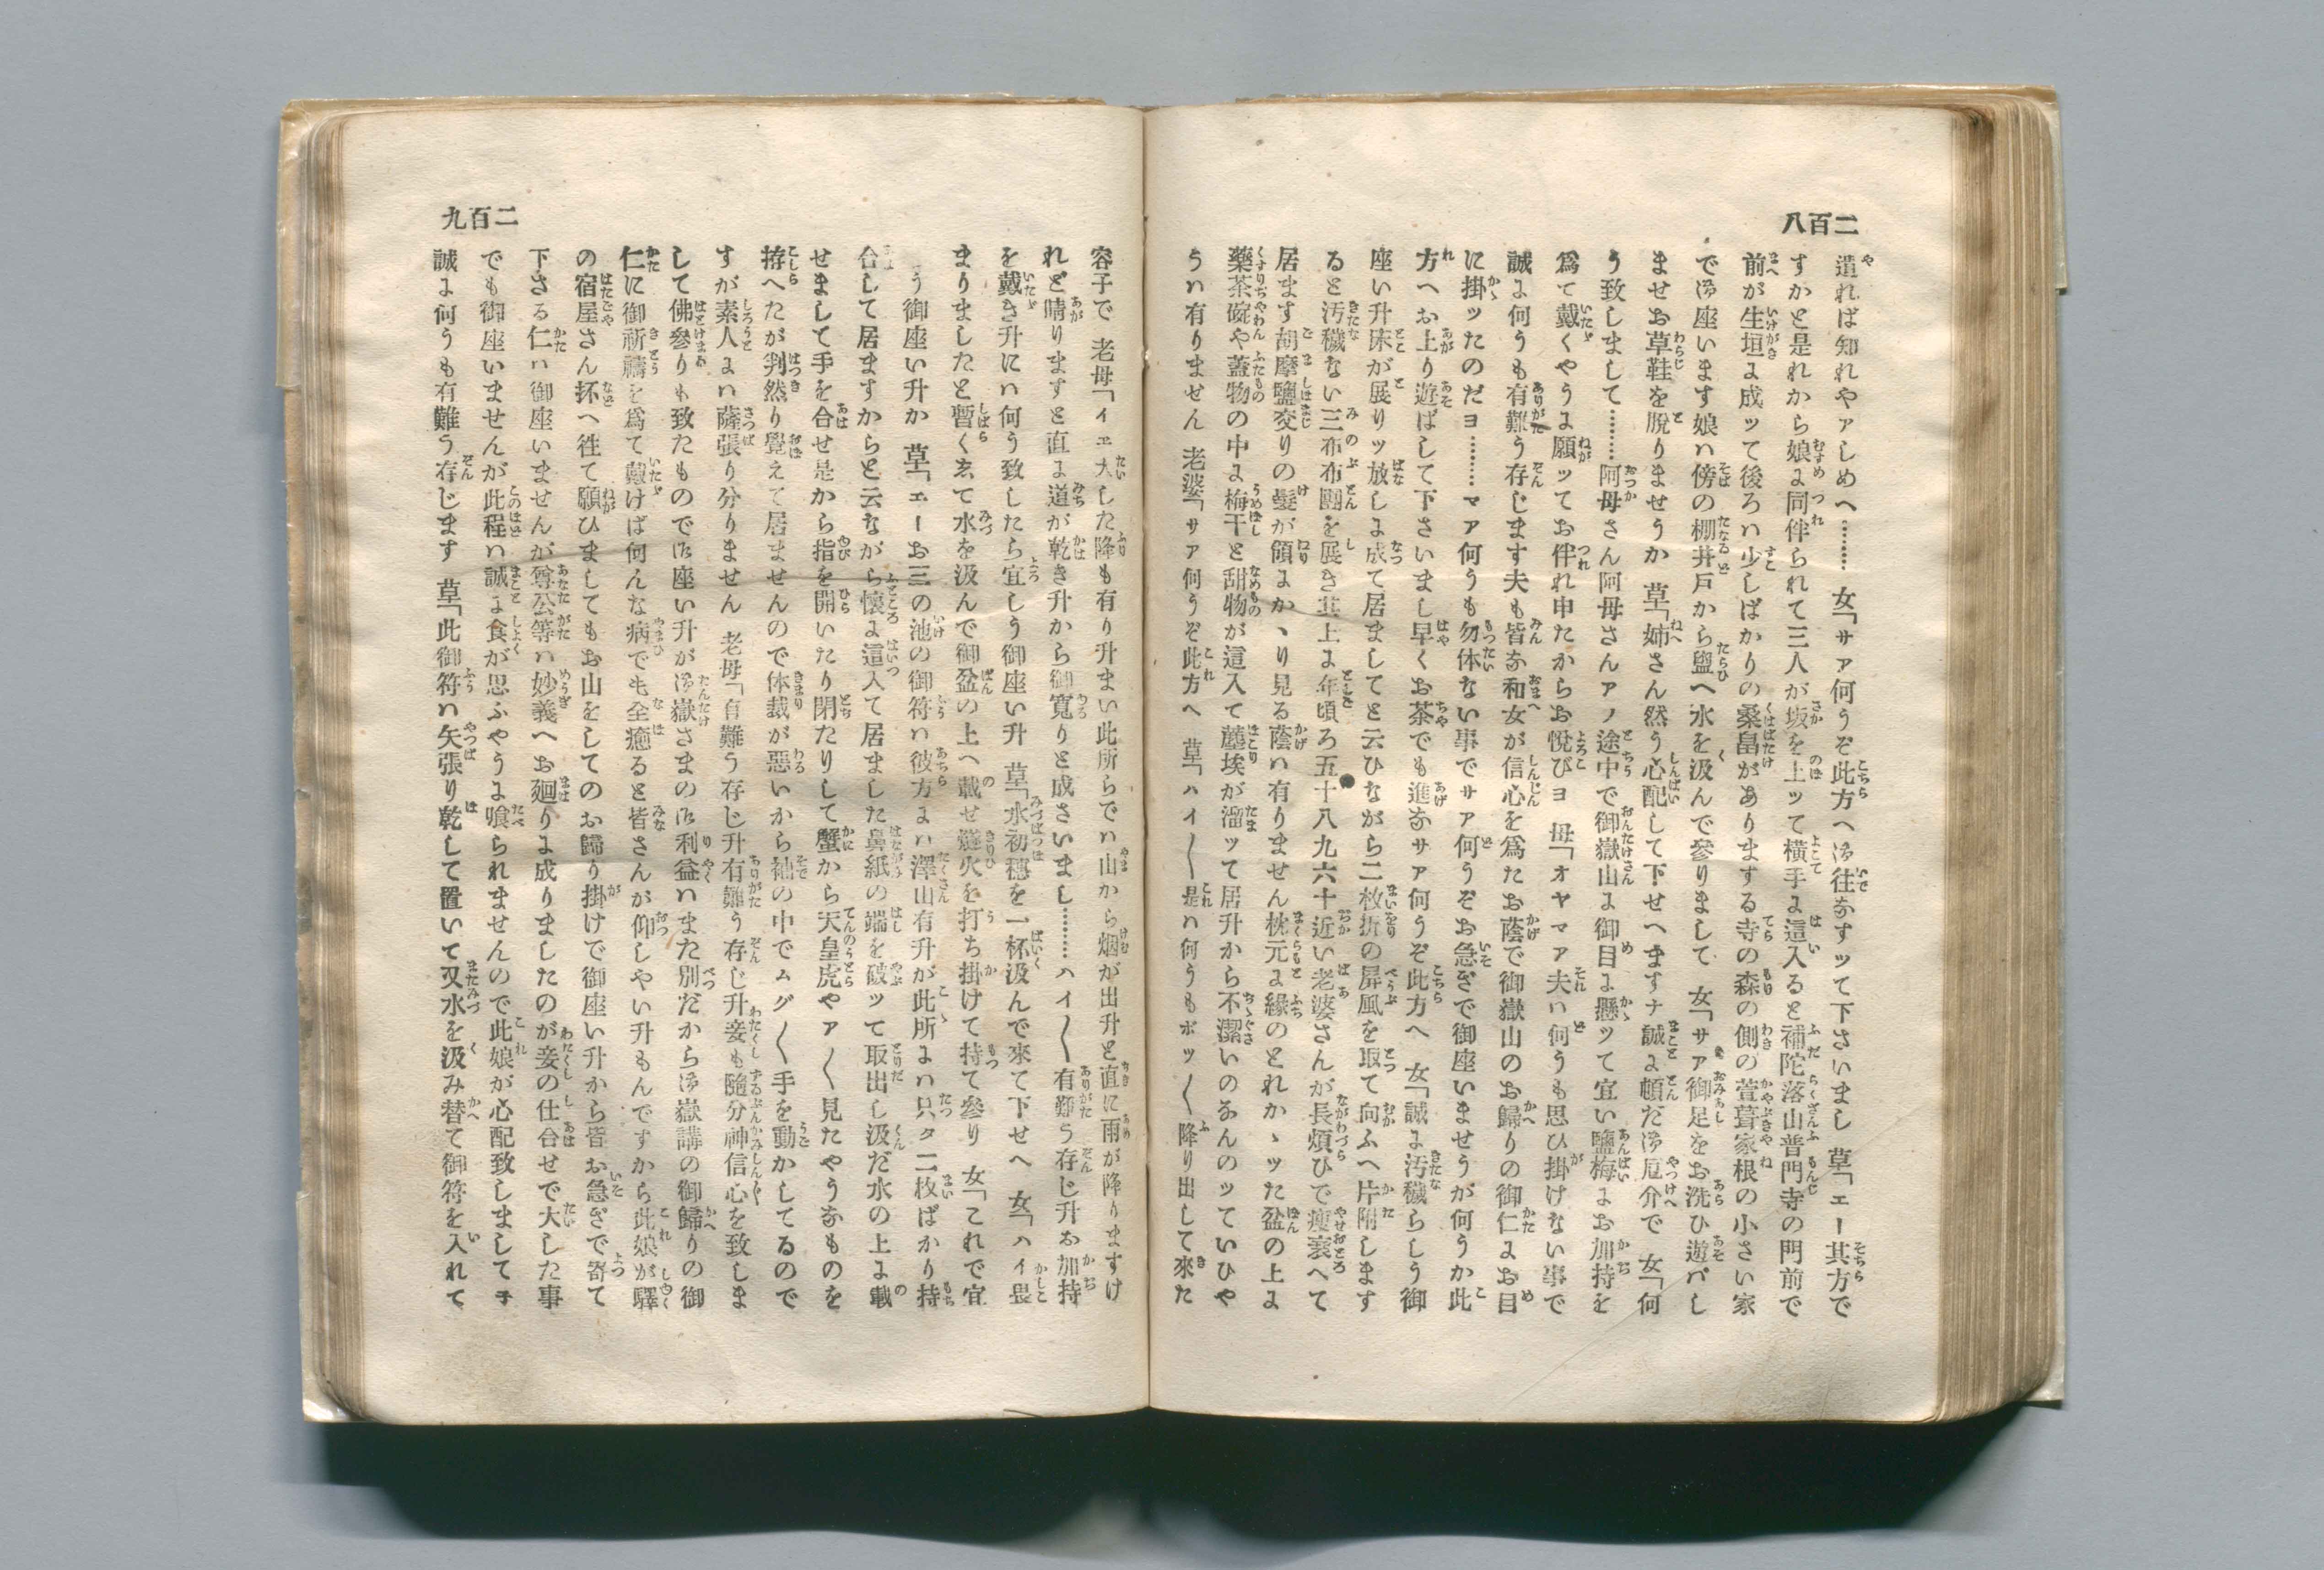 二百八
遣れば知れやァしめへ……… 女「サァ何うぞ此方へ御往なすッて下さいまし 草「エー其方で
すかと是れから娘に同伴られて三人が坂を上ッて横手に這入ると補陀落山普門寺の門前で
前が生垣に成ッて後ろハ少しばかりの桑畠がありまする寺の森の側の萱葺家根の小さい家
で御座います娘ハ傍の棚井戸から盥へ水を汲んで參りまして 女「サァ御足をお洗ひ遊バし
ませお草鞋を脱りませうか 草「姉さん然う心配して下せへますナ誠に頓だ御厄介で 女「何
う致しまして………阿母さん阿母さんアノ途中で御嶽山に御目に懸ッて宜い鹽梅にお加持を
爲て戴くやうに願ッてお伴れ申たからお悅びヨ 母「オヤマア夫ハ何うも思ひ掛けない事で
誠に何うも有難う存じます夫も皆な和女が信心を爲たお蔭で御嶽山のお歸りの御仁にお目
に掛ッたのだヨ………マア何うも勿体ない事でサア何うぞお急ぎで御座いませうが何うか此
方へお上り遊ばして下さいまし早くお茶でも進なサア何うぞ此方へ 女「誠に汚穢らしう御
座い升床が展りッ放しに成て居ましてと云ひながら二枚折の屏風を取て向ふへ片附します
ると汚穢ない三布布團を展き其上に年頃ろ五十八九六十近い老婆さんが長煩ひで瘦衰へて
居ます胡摩鹽交りの髮が領にかゝり見る蔭ハ有りません枕元に緣のとれかゝッた盆の上に
藥茶碗や蓋物の中に梅干と甜物が這入て塵埃が溜ッて居升から不潔いのなんのッていひや
うハ有りません 老婆「サア何うぞ此方へ 草「ハイ〱是ハ何うもポツ〱降り出して來た
二百九
容子で 老母「イエ大した降も有り升まい此所らでハ山から烟が出升と直に雨が降りますけ
れど晴りますと直に道が乾き升から御寬りと成さいまし………ハイ〱有難う存じ升お加持
を戴き升にハ何う致したら宜しう御座い升 草「水初穗を一杯汲んで來て下せへ 女「ハイ畏
まりましたと暫くゑて水を汲んで御盆の上へ載せ燧火を打ち掛けて持て參り 女「これで宜
う御座い升か 草「エーお三の池の御符ハ彼方にハ澤山有升が此所にハ只タ二枚ばかり持
合して居ますからと云ながら懷に這入て居ました鼻紙の端を破ッて取出し汲だ水の上に載
せまして手を合せ是から指を開いたり閉たりして蟹から天皇虎やア〱見たやうなものを
拵へたが判然り覺えて居ませんので体裁が惡いから袖の中でムグ〱手を動かしてるので
すが素人にハ薩張り分りません 老母「有難う存じ升有難う存じ升妾も隨分神信心を致しま
して佛參りも致たもので御座い升が御嶽さまの御利益ハまた別だから御嶽講の御歸りの御
仁に御祈禱を爲て戴けば何んな病でも全癒ると皆さんが仰しやい升もんですから此娘が驛
の宿屋さん抔へ徃て願ひましてもお山をしてのお歸り掛けで御座い升から皆お急ぎで寄て
下さる仁ハ御座いませんが尊公等ハ妙義へお廻りに成りましたのが妾の仕合せで大した事
でも御座いませんが此程ハ誠に食が思ふやうに喰られませんので此娘が心配致しましてヰ
誠に何うも有難う存じます 草「此御符ハ矢張り乾して置いて又水を汲み替て御符を入れて